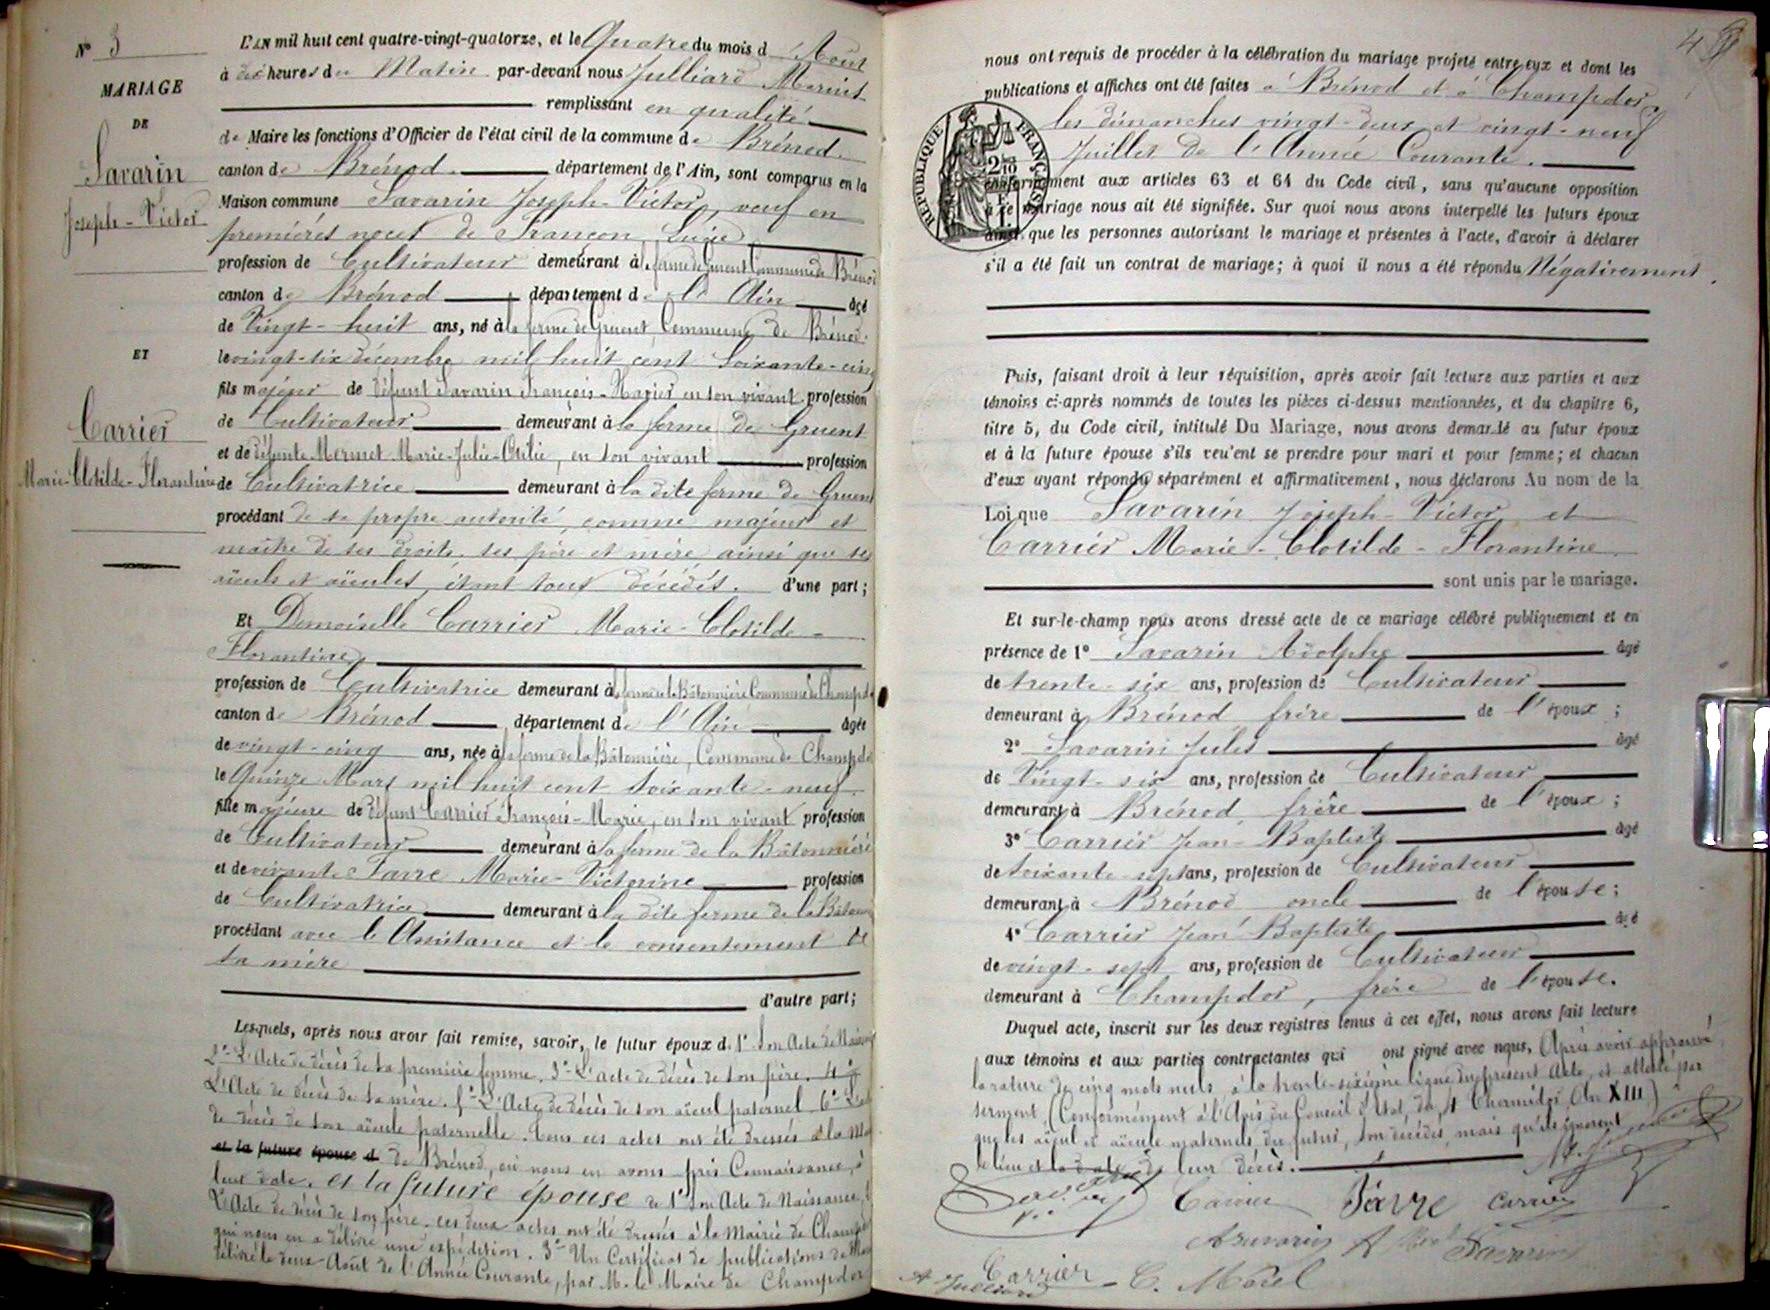 N° 3
MARIAGE
DE
Savarin
Joseph-Victor
ET
Carrier
Marie-Clotilde-Florentine
L'AN mil huit cent quatre-vingt-quatorze, et le Quatre du mois d'Août
à dix heures du Matin par-devant nous Julliard Marius
remplissant en qualité
de Maire les fonctions d'Officier de l'état civil de la commune de Brénod
canton de Brénod département de l'Ain, sont comparus en la
Maison commune Savarin Joseph-Victor, veuf en
premières noces de Françon
profession de Cultivateur demeurant à la ferme de Gruent Commune de Brénod
canton de Brénod département de l'Ain âgé
de Vingt-huit ans, né à la ferme de Gruent, Commune de Brénod
le vingt-six décembre mil huit cent soixante-cinq
fils majeur de défunt Savarin François-Marie en son vivant profession
de Cultivateur demeurant à la ferme de Gruent
et de défunte Mermet Marie-Julie-Otilie, en son vivant profession
de Cultivatrice demeurant à la dite ferme de Gruent
procédant de sa propre autorité, comme majeur et
maître de ses droits, ses père et mère ainsi que ses
aïeuls et aïeules, étant tous décédés. d'une part;
Et Demoiselle Carrier Marie-Clotilde-
Florentine
profession de Cultivatrice demeurant à la ferme de la Bâtonnière Commune de Champd
canton de Brénod département de l'Ain âgée
de vingt-cinq ans, née à la ferme de la Bâtonnière, Commune de Champdo
le Quinze Mars mil huit cent soixante-neuf
fille majeure de défunt Carrier François-Marie, en son vivant profession
de Cultivateur demeurant à la ferme de la Bâtonnière
et de vivante Favre Marie-Victorine profession
de Cultivatrice demeurant à la dite ferme de la Bâtonn
procédant avec l'Assistance et le consentement de
sa mère
d'autre part;
Lesquels, après nous avoir fait remise, savoir, le futur époux d. 1° Son Acte de Naissance
2°- L'Acte de décès de sa première femme. 3°- L'acte de décès de son père. 4°
L'Acte de décès de sa mère. 5°- L'Acte de décès de son aïeul paternel. 6° L'acte
de décès de son aïeule paternelle. Tous ces actes ont été dressés à la Ma
et la future épouse d de Brénod, où nous en avons pris Connaissance, à
leur date. et la future épouse de 1° Son Acte de Naissance,
L'Acte de décès de son père. ces deux actes ont été dressés à la Mairie de Champd
qui nous en a délivré une expédition. 3°- Un Certificat de publications de
délivré le deux Août de l'Année Courante, par M. le Maire de Champdor
4
nous ont requis de procéder à la célébration du mariage projeté entre eux et dont les
publications et affiches ont été faites à Brénod et à Champdor,
les dimanches vingt-deux et vingt-neuf
Juillet de l'Année Courante.
RÉPUBLIQUE FRANÇAISE
conformément aux articles 63 et 64 du Code civil, sans qu'aucune opposition
à ce mariage nous ait été signifiée. Sur quoi nous avons interpellé les futurs époux
ainsi que les personnes autorisant le mariage et présentes à l'acte, d'avoir à déclarer
s'il a été fait un contrat de mariage; à quoi il nous a été répondu Négativement.
Puis, faisant droit à leur réquisition, après avoir fait lecture aux parties et aux
témoins ci-après nommés de toutes les pièces ci-dessus mentionnées, et du chapitre 6,
titre 5, du Code civil, intitulé Du Mariage, nous avons demandé au futur époux
et à la future épouse s'ils veulent se prendre pour mari et pour femme; et chacun
d'eux ayant répondu séparément et affirmativement, nous déclarons Au nom de la
Loi que Savarin Joseph-Victor et
Carrier Marie-Clotilde-Florantine
sont unis par le mariage.
Et sur-le-champ nous avons dressé acte de ce mariage célébré publiquement et en
présence de 1° Savarin Adolphe âgé
de trente-six ans, profession de Cultivateur
demeurant à Brénod frère de l'époux;
2° Savarin Jules âgé
de Vingt-six ans, profession de Cultivateur
demeurant à Brénod frère de l'époux;
3° Carrier Jean-Baptiste âgé
de soixante-sept ans, profession de Cultivateur
demeurant à Brénod oncle de l'épouse;
4° Carrier Jean Baptiste âgé
de vingt-sept ans, profession de Cultivateur
demeurant à Champdor, frère de l'épouse.
Duquel acte, inscrit sur les deux registres tenus à cet effet, nous avons fait lecture
aux témoins et aux parties contractantes qui ont signé avec nous. Après avoir approuvé
la rature de cinq mots nuls à la trente-sixième ligne du présent Acte, et attesté par
serment (Conformément à l'Avis du Conseil d'État, du 4 Thermidor An XIII)
que les aïeul et aïeule maternels du futur, son décédés, mais qu'ils ignorent
le lieu et la date de leur décès.
Carrier Favre Carrier
Savarin
Carrier C. Morel
Julliard